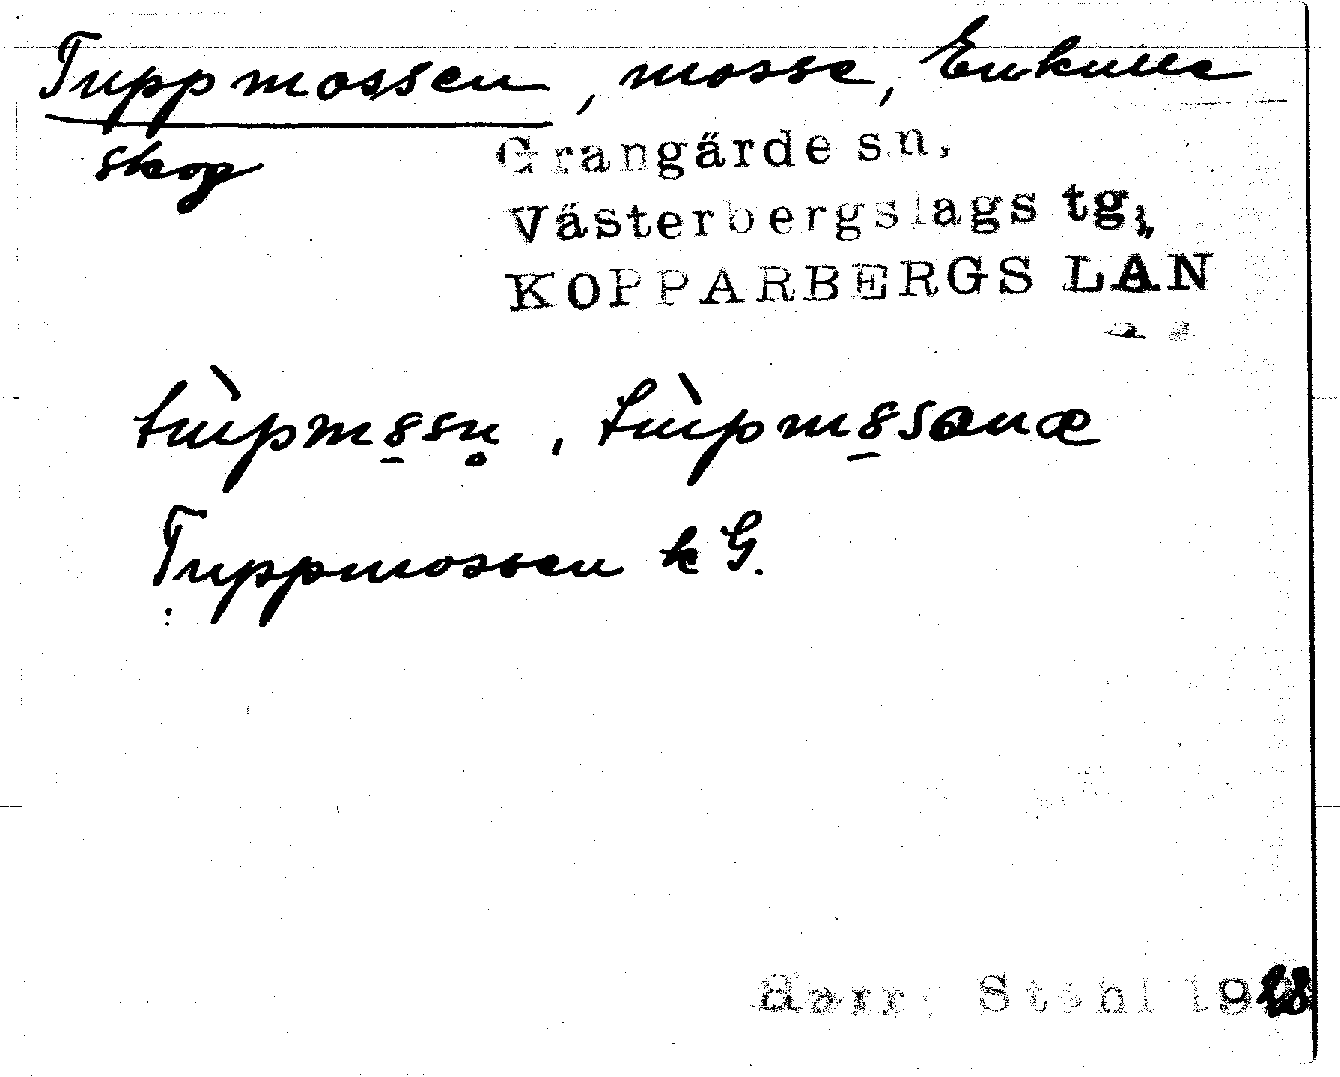 Tuppmossen, mosse, Enkulle
skog
Grangärde sn,
Västerbergslags tg,
KOPPARBERGS LÄN
tùpm8̲sn̥, tùpm8̲sanæ
Tuppmossen k G.
Harry Ståhl 1928